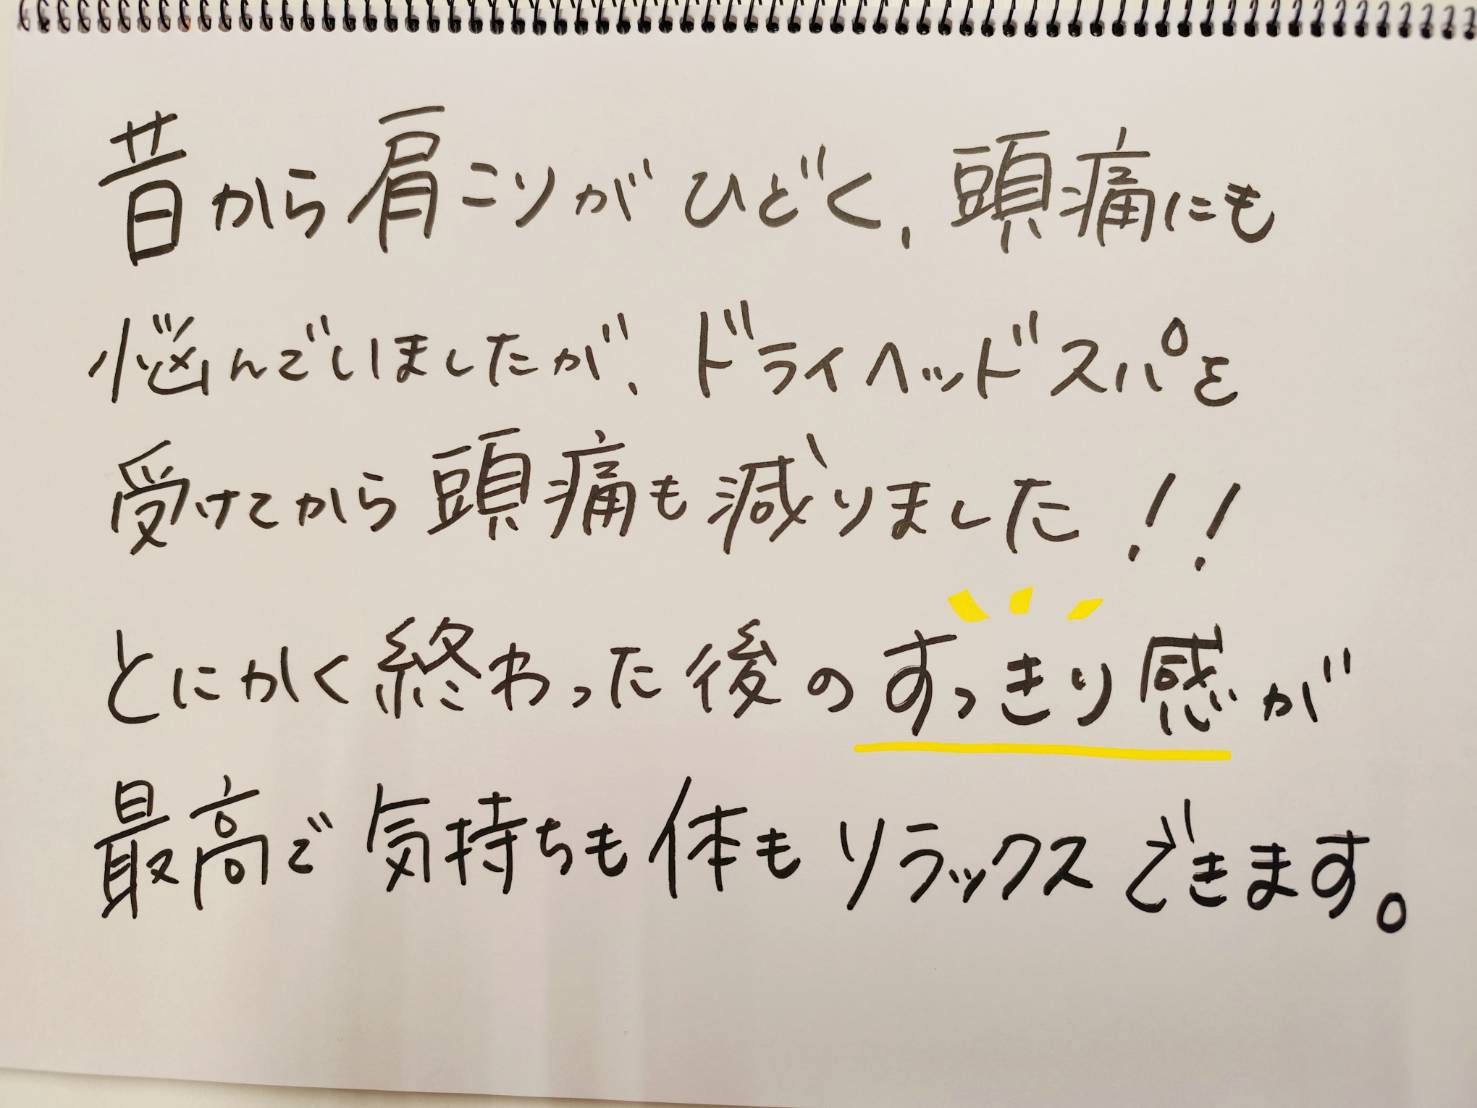 昔から肩こりがひどく、頭痛にも
悩んでいましたが、ドライヘッドスパを
受けてから頭痛も減りました!!
とにかく終わった後のすっきり感が
最高で気持ちも体もリラックスできます。